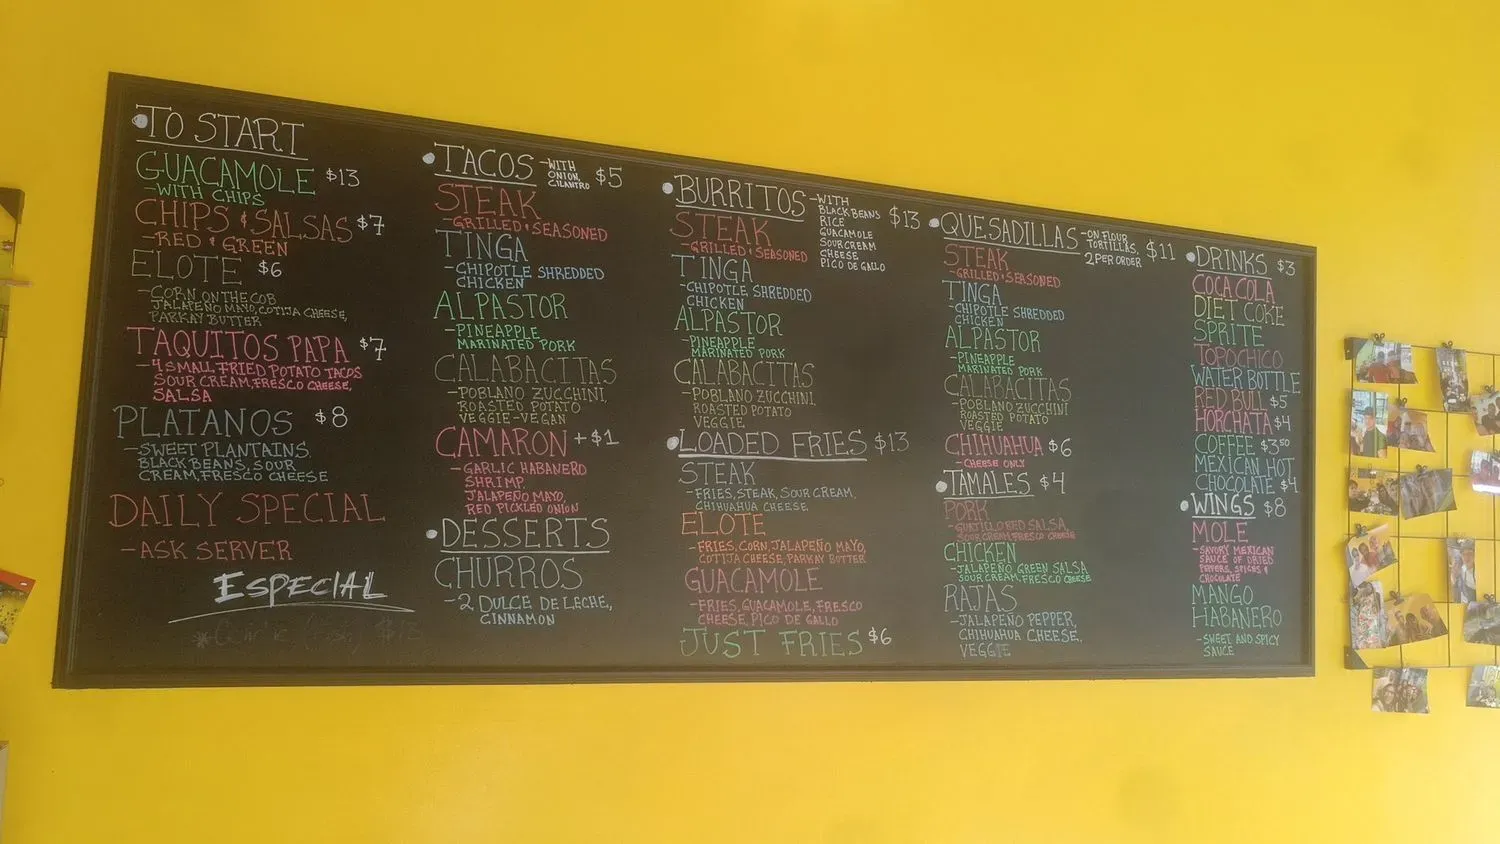 TO START
GUACAMOLE $13
-WITH CHIPS
CHIPS & SALSAS $7
-RED & GREEN
ELOTE $6
-CORN ON THE COB
JALAPEÑO MAYO, COTIJA CHEESE,
PARKAY BUTTER
TAQUITOS PAPA $7
-4 SMALL FRIED POTATO TACOS
SOUR CREAM, FRESCO CHEESE,
SALSA
PLATANOS $8
-SWEET PLANTAINS,
BLACK BEANS, SOUR
CREAM, FRESCO CHEESE
DAILY SPECIAL
-ASK SERVER
ESPECIAL
TACOS -WITH ONION, CILANTRO $5
STEAK
-GRILLED & SEASONED
TINGA
-CHIPOTLE SHREDDED
CHICKEN
ALPASTOR
-PINEAPPLE
MARINATED PORK
CALABACITAS
-POBLANO ZUCCHINI,
ROASTED POTATO
VEGGIE-VEGAN
CAMARON +$1
-GARLIC HABANERO
SHRIMP,
JALAPEÑO MAYO,
RED PICKLED ONION
DESSERTS
CHURROS
-2 DULCE DE LECHE,
CINNAMON
BURRITOS -WITH $13
BLACK BEANS
RICE
GUACAMOLE
SOUR CREAM
CHEESE
PICO DE GALLO
STEAK
-GRILLED & SEASONED
TINGA
-CHIPOTLE, SHREDDED
CHICKEN
ALPASTOR
-PINEAPPLE
MARINATED PORK
CALABACITAS
-POBLANO ZUCCHINI,
ROASTED POTATO
VEGGIE
LOADED FRIES $13
STEAK
-FRIES, STEAK, SOUR CREAM,
CHIHUAHUA CHEESE
ELOTE
-FRIES, CORN, JALAPEÑO MAYO,
COTIJA CHEESE, PARKAY BUTTER
GUACAMOLE
-FRIES, GUACAMOLE, FRESCO
CHEESE, PICO DE GALLO
JUST FRIES $6
QUESADILLAS -ON FLOUR TORTILLAS, 2 PER ORDER $11
STEAK
-GRILLED & SEASONED
TINGA
-CHIPOTLE SHREDDED
CHICKEN
ALPASTOR
-PINEAPPLE
MARINATED PORK
CALABACITAS
-POBLANO ZUCCHINI
ROASTED POTATO
VEGGIE
CHIHUAHUA $6
-CHEESE ONLY
TAMALES $4
PORK
-GUAJILLO RED SALSA,
SOUR CREAM, FRESCO CHEESE
CHICKEN
-JALAPEÑO GREEN SALSA
SOUR CREAM, FRESCO CHEESE
RAJAS
-JALAPEÑO PEPPER,
CHIHUAHUA CHEESE,
VEGGIE
DRINKS $3
COCA COLA
DIET COKE
SPRITE
TOPO CHICO
WATER BOTTLE
RED BULL $5
HORCHATA $4
COFFEE $3.50
MEXICAN HOT
CHOCOLATE $4
WINGS $8
MOLE
-SAVORY MEXICAN
SAUCE OF DRIED
PEPPERS, SPICES &
CHOCOLATE
MANGO
HABANERO
-SWEET AND SPICY
SAUCE